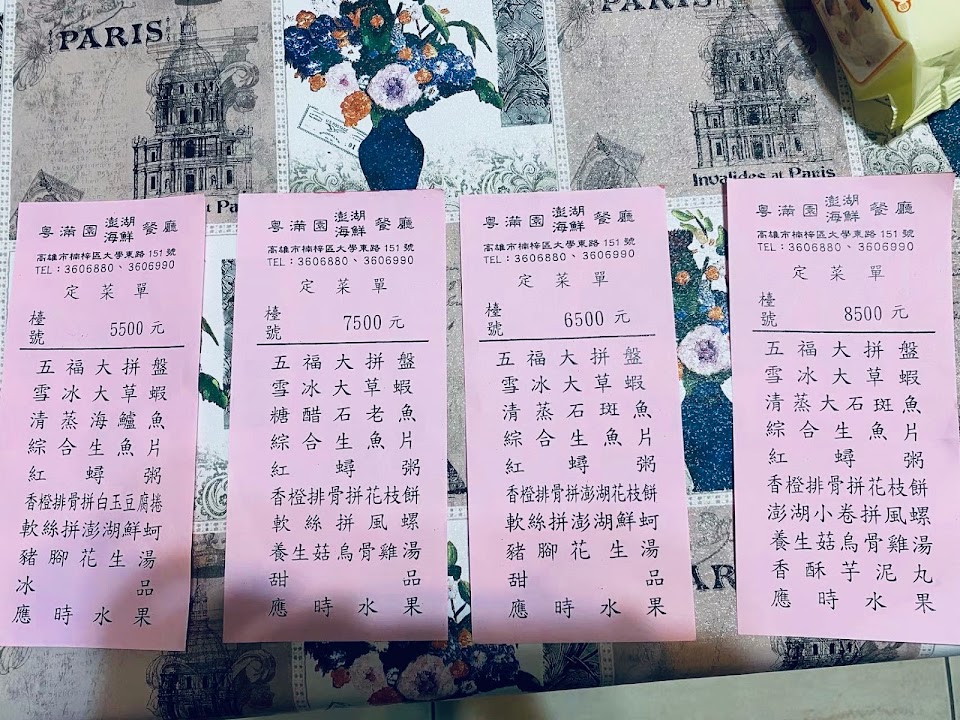 PARIS
PARIS
Invalides at Paris
at Pa
PAR
粵滿園澎湖海鮮餐廳
高雄市楠梓區大學東路151號
TEL：3606880、3606990
定菜單
檯號 5500元
五福大拼盤
雪冰大草蝦
清蒸海鱸魚
綜合生魚片
紅蟳粥
香橙排骨拼白玉豆腐捲
軟絲拼澎湖鮮蚵
豬腳花生湯
冰品
應時水果
粵滿園澎湖海鮮餐廳
高雄市楠梓區大學東路151號
TEL：3606880、3606990
定菜單
檯號 7500元
五福大拼盤
雪冰大草蝦
糖醋石老魚
綜合生魚片
紅蟳粥
香橙排骨拼花枝餅
軟絲拼風螺
養生菇烏骨雞湯
甜品
應時水果
粵滿園澎湖海鮮餐廳
高雄市楠梓區大學東路151號
TEL：3606880、3606990
定菜單
檯號 6500元
五福大拼盤
雪冰大草蝦
清蒸石斑魚
綜合生魚片
紅蟳粥
香橙排骨拼澎湖花枝餅
軟絲拼澎湖鮮蚵
豬腳花生湯
甜品
應時水果
粵滿園澎湖海鮮餐廳
高雄市楠梓區大學東路151號
TEL：3606880、3606990
定菜單
檯號 8500元
五福大拼盤
雪冰大草蝦
清蒸大石斑魚
綜合生魚片
紅蟳粥
香橙排骨拼花枝餅
澎湖小卷拼風螺
養生菇烏骨雞湯
香酥芋泥丸
應時水果